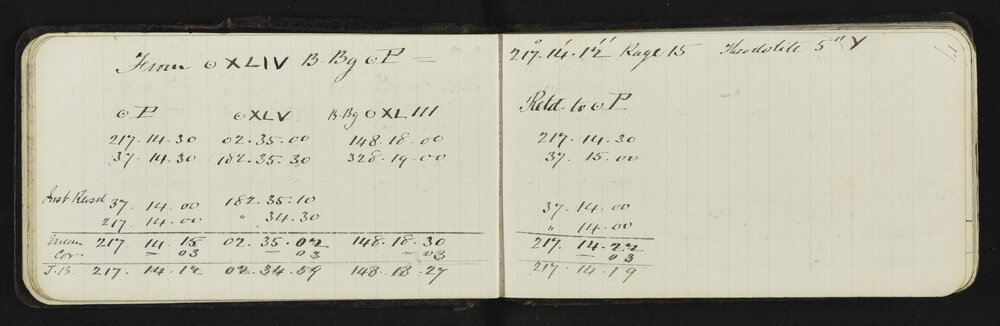 From ⊙ XLIV B. Bg ⊙ P =
⊙ P ⊙ XLV B. Bg ⊙ XLIII
217. 14. 30 02. 35. 00 148. 18. 00
37. 14. 30 182. 35. 30 328. 19. 00
Inst Revsd 37. 14. 00 182. 35. 10
217. 14. 00 " 34. 30
Mean 217 14. 15 02. 35. 02 148. 18. 30
Cor. — 03 — 03 — 03
T.B. 217. 14. 12 02. 34. 59 148. 18. 27
217° 14' 12" Page 15 Theodolite 5" Y
Retd to ⊙ P
217. 14. 30
37. 15. 00
37. 14. 00
" 14. 00
217. 14. 22
— 03
217. 14. 19